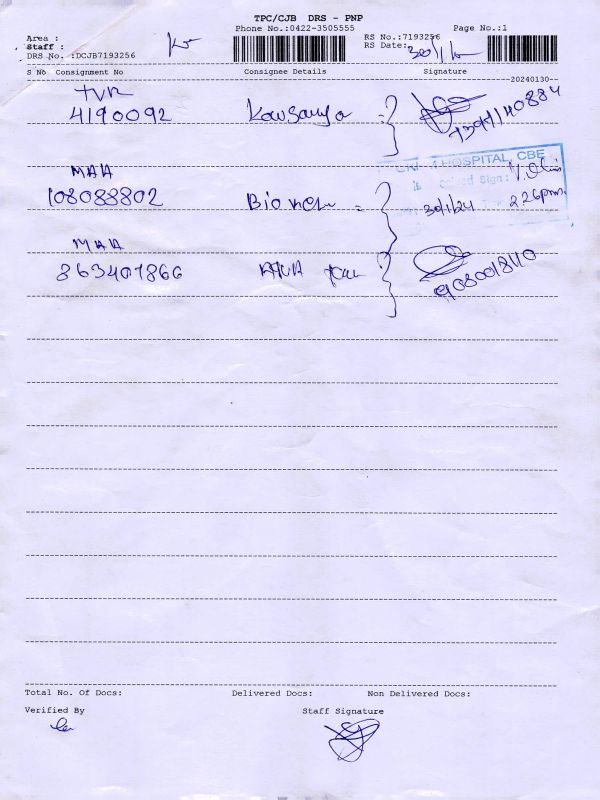 TPC/CJB DRS - PNP
Phone No.:0422-3505555
Area :
Staff :
DRS No. :DCJB7193256
RS No.:7193256
RS Date:
Page No.:1
S No Consignment No Consignee Details Signature
20240130
TVR
4190092 Kousalya
MAA
108088802 Bio
HOSPITAL, CBE
Sign:
30/1/24 2.26pm.
MAA
863401866
9080018110
Total No. Of Docs: Delivered Docs: Non Delivered Docs:
Verified By Staff Signature